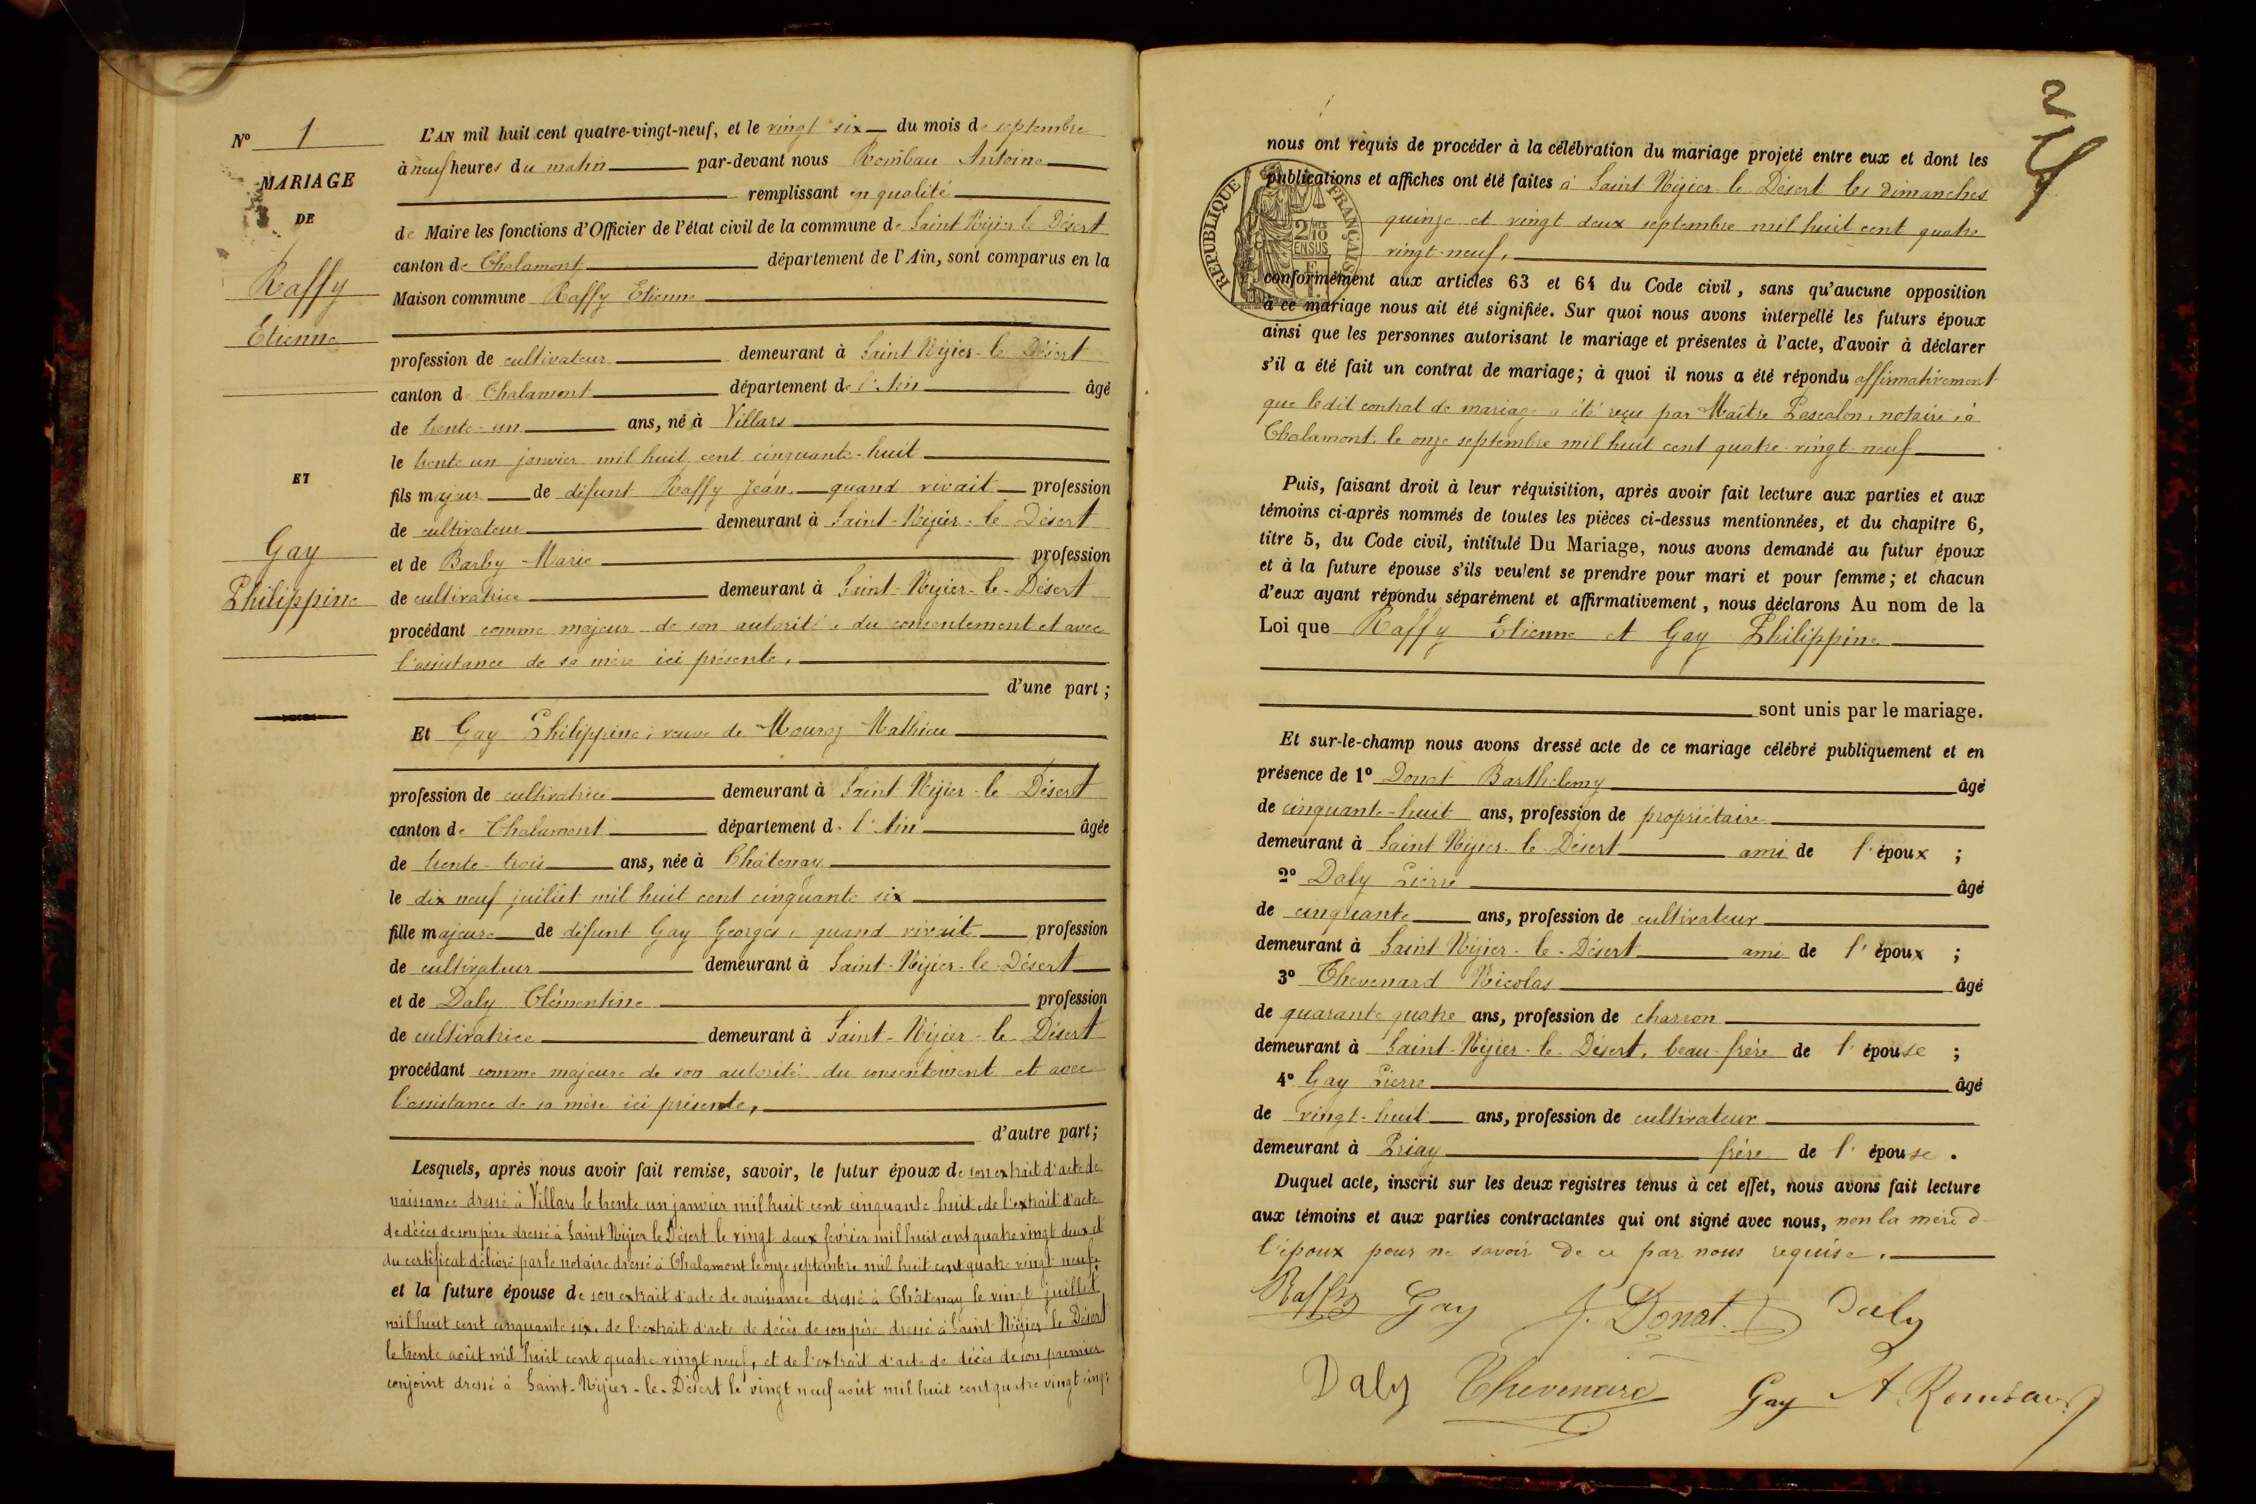 N° 1
MARIAGE
DE
Raffy
Etienne
ET
Gay
Philippine
L'AN mil huit cent quatre-vingt-neuf, et le vingt six du mois de septembre
à neuf heures du matin par-devant nous Rombau Antoine
remplissant en qualité
de Maire les fonctions d'Officier de l'état civil de la commune de Saint Nizier le Désert
canton de Chalamont département de l'Ain, sont comparus en la
Maison commune Raffy Etienne
profession de cultivateur demeurant à Saint Nizier-le Désert
canton d Chalamont département de l'Ain âgé
de trente-un ans, né à Villars
le trente un janvier mil huit cent cinquante-huit
fils majeur de défunt Raffy Jean, quand vivait profession
de cultivateur demeurant à Saint-Nizier-le Désert
et de Barby Marie profession
de cultivatrice demeurant à Saint-Nizier-le-Désert
procédant comme majeur de son autorité, du consentement et avec
l'assistance de sa mère ici présente,
d'une part;
Et Gay Philippine, veuve de Mouroz Mathieu
profession de cultivatrice demeurant à Saint Nizier-le Désert
canton de Chalamont département d. l'Ain âgée
de trente-trois ans, née à Châtenay
le dix neuf juillet mil huit cent cinquante six
fille majeure de défunt Gay Georges, quand vivait profession
de cultivateur demeurant à Saint-Nizier-le-Désert
et de Daly Clémentine profession
de cultivatrice demeurant à Saint-Nizier-le Désert
procédant comme majeure de son autorité du consentement et avec
l'assistance de sa mère ici présente,
d'autre part;
Lesquels, après nous avoir fait remise, savoir, le futur époux de son extrait d'acte de
naissance dressé à Villars le trente un janvier mil huit cent cinquante huit, de l'extrait d'acte
de décès de son père dressé à Saint Nizier le Désert le vingt deux février mil huit cent quatre vingt deux et
du certificat délivré par le notaire dressé à Chalamont le onze septembre mil huit cent quatre vingt neuf;
et la future épouse de son extrait d'acte de naissance dressé à Châtenay le vingt juillet
mil huit cent cinquante six, de l'extrait d'acte de décès de son père dressé à Saint Nizier le Désert
le trente août mil huit cent quatre vingt neuf, et de l'extrait d'acte de décès de son premier
conjoint dressé à Saint-Nizier-le-Désert le vingt neuf août mil huit cent quatre vingt cinq
2
nous ont requis de procéder à la célébration du mariage projeté entre eux et dont les
publications et affiches ont été faites à Saint Nizier le Désert les dimanches
quinze et vingt deux septembre mil huit cent quatre
vingt-neuf,
REPUBLIQUE FRANÇAISE
conformément aux articles 63 et 64 du Code civil, sans qu'aucune opposition
à ce mariage nous ait été signifiée. Sur quoi nous avons interpellé les futurs époux
ainsi que les personnes autorisant le mariage et présentes à l'acte, d'avoir à déclarer
s'il a été fait un contrat de mariage; à quoi il nous a été répondu affirmativement
que le dit contrat de mariage a été reçu par Maître Pascalon, notaire, à
Chalamont, le onze septembre mil huit cent quatre-vingt-neuf
Puis, faisant droit à leur réquisition, après avoir fait lecture aux parties et aux
témoins ci-après nommés de toutes les pièces ci-dessus mentionnées, et du chapitre 6,
titre 5, du Code civil, intitulé Du Mariage, nous avons demandé au futur époux
et à la future épouse s'ils veulent se prendre pour mari et pour femme; et chacun
d'eux ayant répondu séparément et affirmativement, nous déclarons Au nom de la
Loi que Raffy Etienne et Gay Philippine
sont unis par le mariage.
Et sur-le-champ nous avons dressé acte de ce mariage célébré publiquement et en
présence de 1° Donat Barthelemy âgé
de cinquante-huit ans, profession de propriétaire
demeurant à Saint Nizier-le Désert ami de l'époux ;
2° Daly Pierre âgé
de cinquante ans, profession de cultivateur
demeurant à Saint Nizier-le-Désert ami de l'époux ;
3° Thevenard Nicolas âgé
de quarante quatre ans, profession de charron
demeurant à Saint-Nizier-le Désert, beau-frère de l'épouse ;
4° Gay Pierre âgé
de vingt-huit ans, profession de cultivateur
demeurant à Priay frère de l'épouse .
Duquel acte, inscrit sur les deux registres tenus à cet effet, nous avons fait lecture
aux témoins et aux parties contractantes qui ont signé avec nous, non la mère d
l'époux pour ne savoir de ce par nous requise.
Raffy Gay J. Donat Daly
Daly Thevenard Gay A. Rombau